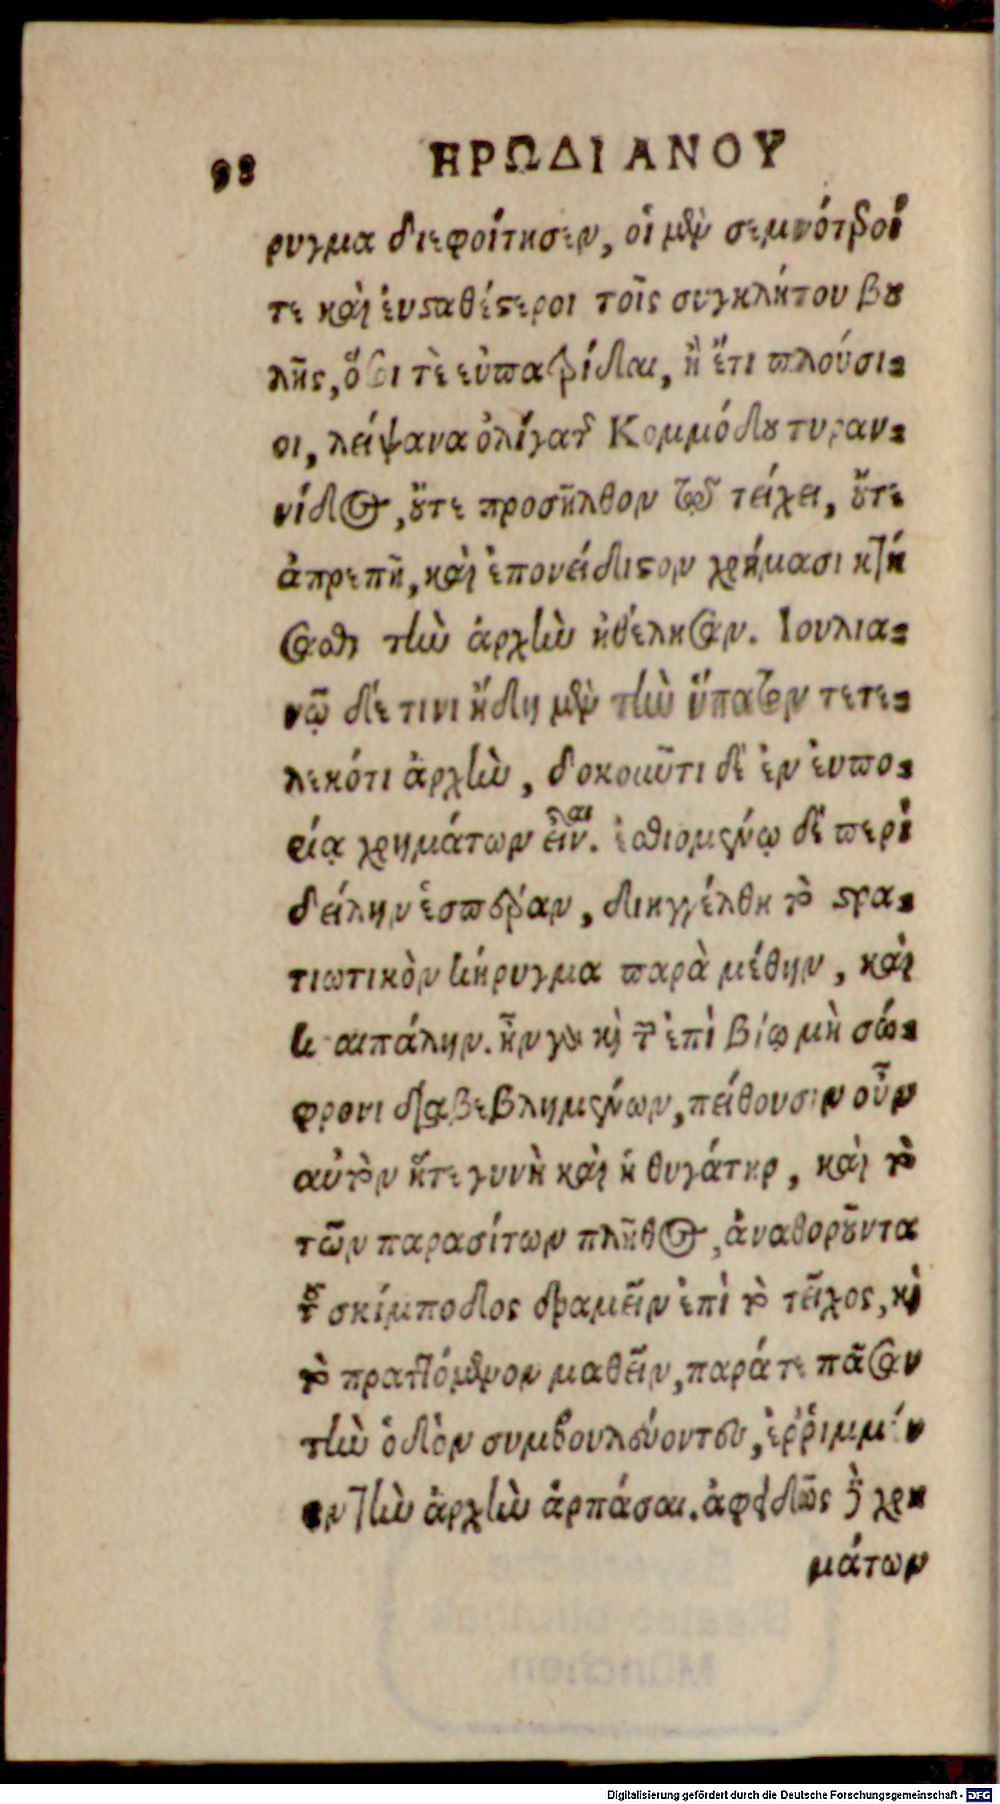 98 ΗΡΩΔΙΑΝΟΥ
ρυγμα διεφοίτησεν, οἱ μὲν σεμνότεροί
τε καὶ εὐσταθέστεροι τοῖς συγκλήτου βου
λῆς, ὅσοι τὲ εὐπατρίδαι, ἢ ἔτι πλούσι-
οι, λείψανα ὀλίγα τῆς Κομμόδου τυραν-
νίδος, οὔτε προσῆλθον τῷ τείχει, οὔτε
ἀπρεπῆ, καὶ ἐπονείδιστον χρήμασι κτή
σασθαι τὴν ἀρχὴν ἠθέλησαν. Ιουλια-
νῷ δέ τινι ἤδη μὲν τὴν ὕπατον τετε-
λεκότι ἀρχὴν, δοκοιῦτι δὲ ἐν ἐυπο-
ρίᾳ χρημάτων εἶναι. ἐσθιομένῳ δὲ περὶ
δείλην ἑσπέραν, διηγγέλθη τὸ στρα-
τιωτικὸν κήρυγμα παρὰ μέθην, καὶ
κραιπάλην. ἦν γὰρ καὶ τῶν ἐπὶ βίῳ μὴ σώ-
φρονι διαβεβλημένων, πείθουσιν οὖν
αὐτὸν ἥτε γυνὴ καὶ ἡ θυγάτηρ, καὶ τὸ
τῶν παρασίτων πλῆθος, ἀναθοροῦντα
τοῦ σκίμποδος δραμεῖν ἐπὶ τὸ τεῖχος, καὶ
τὸ πραττόμενον μαθεῖν, παρά τε πᾶσαν
τὴν ὁδὸν συμβουλεύοντες, ἐῤῥιμμέν
ην τὴν ἀρχὴν ἁρπάσαι. ἀφειδῶς δὲ χρη
μάτων
Digitalisierung gefördert durch die Deutsche Forschungsgemeinschaft - DFG